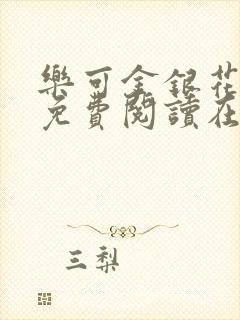 樂可金銀花
免費閱讀在
三梨